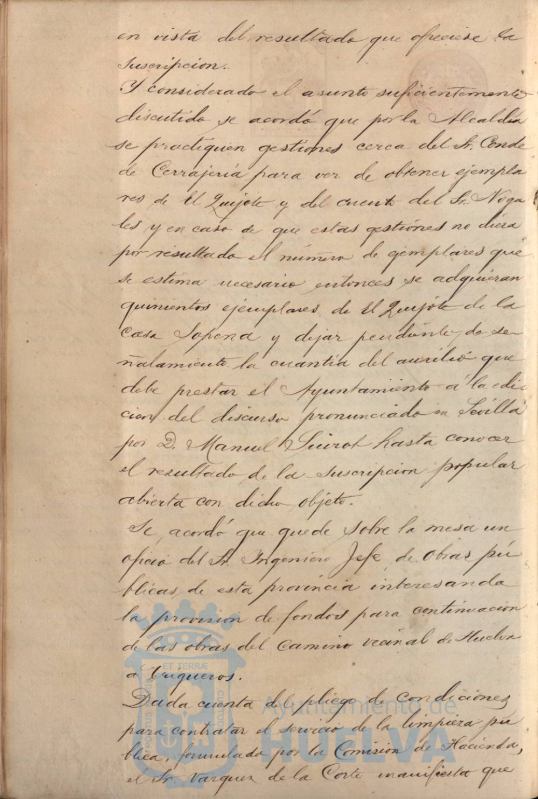 en vista del resultado que ofreciese la
suscripcion.
Y considerado el asunto suficientemente
discutido se acordó que por la Alcaldia
se practiquen gestiones cerca del Sr. Conde
de Cerrajeria para ver de obtener ejempla
res de El Quijote y del cuento del Sr. Noga
les y en caso de que estas gestiones no diera
por resultado el número de ejemplares que
se estima necesario, entonces se adquieran
quinientos ejemplares de El Quijote de la
casa Sopena y dejar pendiente de se
ñalamiento la cuantia del auxilio que
debe prestar el Ayuntamiento á la edi
cion del discurso pronunciado en Sevilla
por D. Manuel Siurot hasta conocer
el resultado de la suscripcion popular
abierta con dicho objeto.
Se acordó que quede sobre la mesa un
oficio del Sr. Ingeniero Jefe de Obras pú
blicas de esta provincia interesando
la provision de fondos para continuacion
de las obras del camino vecinal de Huelva
a Trigueros.
Dada cuenta del pliego de condiciones
para contratar el servicio de la limpieza pú
blica, formulado por la Comision de Hacienda,
el Sr. Vazquez de la Corte manifiesta que
Ayuntamiento de
HUELVA